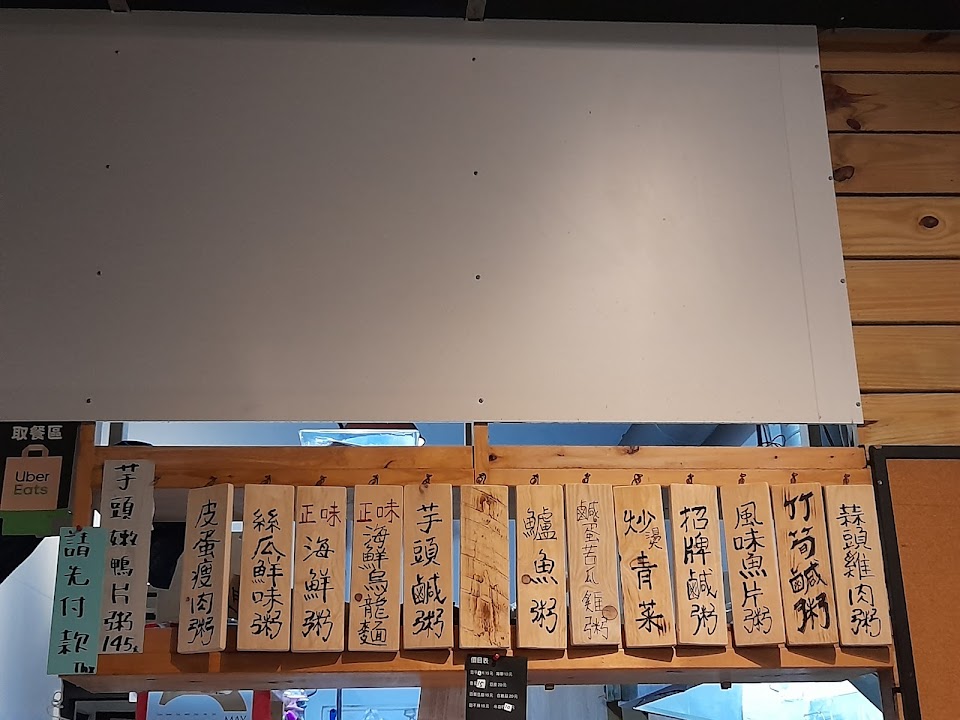 取餐區
Uber
Eats
請先付款
Thx
芋頭嫩鴨片粥145
皮蛋瘦肉粥
絲瓜鮮味粥
正味海鮮粥
正味海鮮烏龍麵
芋頭鹹粥
鱸魚粥
鹹蛋苦瓜雞粥
炒燙青菜
招牌鹹粥
風味魚片粥
竹筍鹹粥
蒜頭雞肉粥
MAY